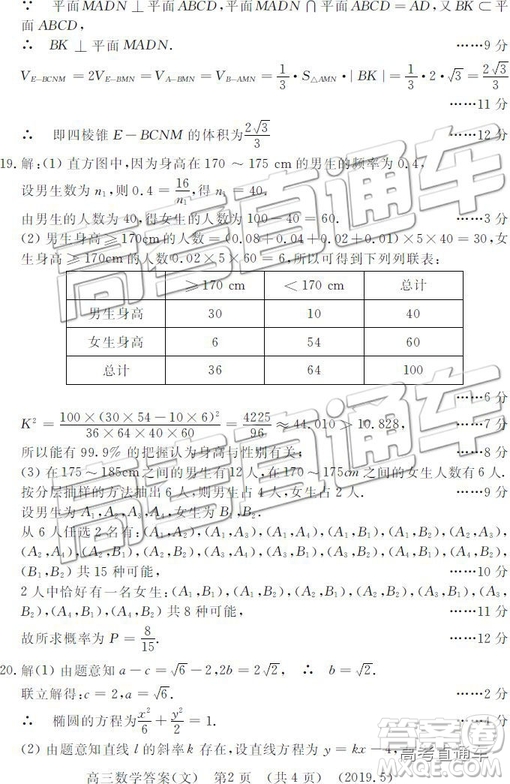 ∵ 平面 MADN ⊥ 平面 ABCD, 平面 MADN ∩ 平面 ABCD = AD, 又 BK ⊂ 平
面 ABCD,
∴ BK ⊥ 平面 MADN. ……9 分
V_{E-BCNM} = 2V_{E-BMN} = V_{A-BMN} = V_{B-AMN} = 1/3 · S_{△AMN} · | BK | = 1/3 · 2 · √3 = 2√3/3
……11 分
∴ 即四棱锥 E-BCNM 的体积为 2√3/3 ……12 分
19. 解:(1) 直方图中,因为身高在 170 ~ 175 cm 的男生的频率为 0.4,
设男生数为 n₁, 则 0.4 = 16/n₁, 得 n₁ = 40,
由男生的人数为 40, 得女生的人数为 100 - 40 = 60. ……3 分
(2) 男生身高 ≥ 170cm 的人数 = (0.08 + 0.04 + 0.02 + 0.01) × 5 × 40 = 30, 女
生身高 ≥ 170cm 的人数 0.02 × 5 × 60 = 6, 所以可得到下列列联表:
≥ 170 cm < 170 cm 总计
男生身高 30 10 40
女生身高 6 54 60
总计 36 64 100
……6 分
K² = 100 × (30 × 54 - 10 × 6)² / 36 × 64 × 40 × 60 = 4225/96 ≈ 44.010 > 10.828, ……7 分
所以能有 99.9% 的把握认为身高与性别有关; ……8 分
(3) 在 175 ~ 185cm 之间的男生有 12 人, 在 170 ~ 175cm 之间的女生人数有 6 人.
按分层抽样的方法抽出 6 人, 则男生占 4 人, 女生占 2 人. ……9 分
设男生为 A₁, A₂, A₃, A₄, 女生为 B₁, B₂.
从 6 人任选 2 名有: (A₁, A₂), (A₁, A₃), (A₁, A₄), (A₁, B₁), (A₁, B₂), (A₂, A₃),
(A₂, A₄), (A₂, B₁), (A₂, B₂), (A₃, A₄), (A₃, B₁), (A₃, B₂), (A₄, B₁), (A₄, B₂),
(B₁, B₂) 共 15 种可能, ……10 分
2 人中恰好有一名女生: (A₁, B₁), (A₁, B₂), (A₂, B₁), (A₂, B₂), (A₃, B₁), (A₃,
B₂), (A₄, B₁), (A₄, B₂) 共 8 种可能, ……11 分
故所求概率为 P = 8/15. ……12 分
20. 解(1) 由题意知 a - c = √6 - 2, 2b = 2√2, ∴ b = √2.
联立解得: c = 2, a = √6. ……2 分
∴ 椭圆的方程为 x²/6 + y²/2 = 1.
(2) 由题意知直线 l 的斜率 k 存在, 设直线方程为 y = kx
高三数学答案(文) 第2页 (共4页) (2019.5)
高考直通车
高考直通车
高考直通车
答案圈
MXQE.COM
高考直通车